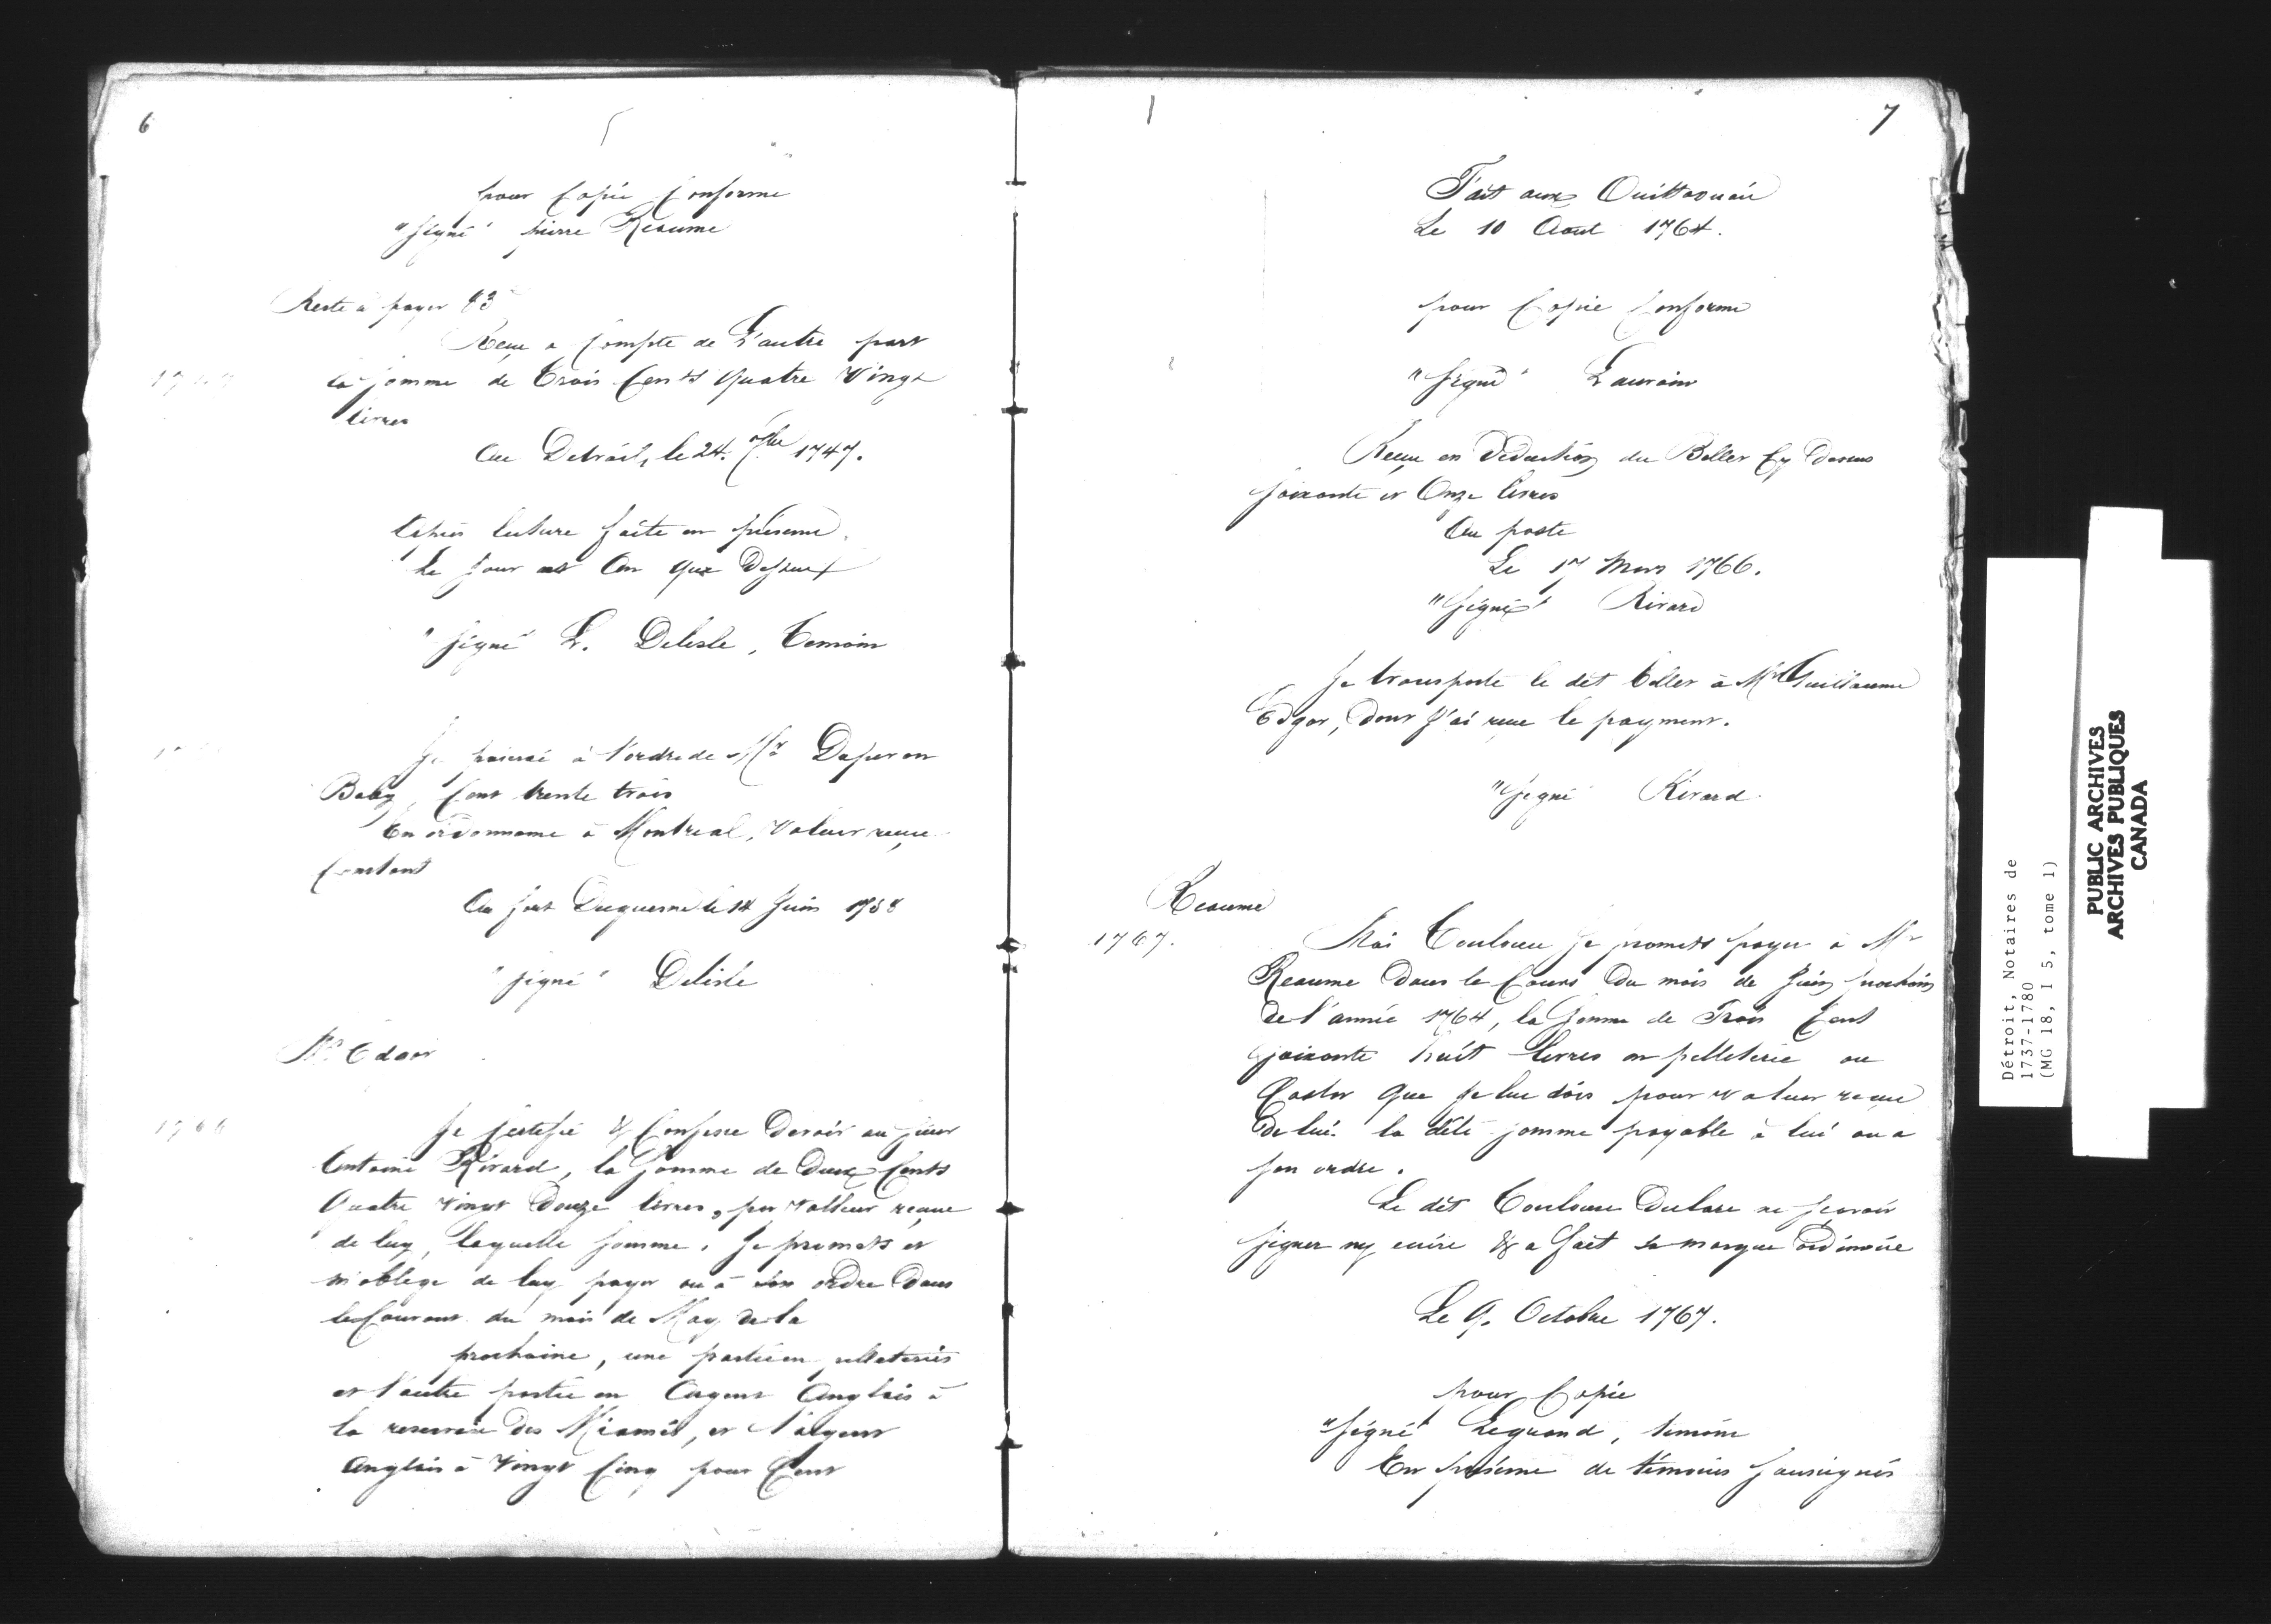 6
pour Copie Conforme
"Signé" pierre Reaume
Reste à payer 83
Reçu a Compte de L'autre part
la somme de Trois Cents Quatre Vingt
livres
Au Detroit, le 24. 7bre 1747.
Après lecture faite en présence
Le Jour et An que Dessus
"Signé L. Delisle, Temoin
Je payerai à l'ordre de Mr Duperon
Baby, Cent trente trois
En ordonnance à Montreal, Valeur reçue
Comtant
Au fort Duquesne le 14 Juin 1758
"Signé" Delisle
Mr Edgar
1764
Je Certifie & Confesse Devoir au Sieur
Antoine Rivard, la Somme de Deux Cents
Quatre Vingt Douze livres, par Valleur reçue
de luy, laquelle somme, Je promets et
m'oblige de luy payer ou à son ordre Dans
le Courant du mois de May de la
prochaine, une partie en pelleteries
et l'autre partie en Argent Anglais à
la des Miamis, et l'argent
Anglais à Vingt Cinq pour Cent
7
Fait aux Ouittaouais
Le 10 Aout 1764.
pour Copie Conforme
"Signé" Laurain
Reçu en Déduction du Billet Cy Dessus
Soixante et Onze livres
Au poste
Le 17 Mars 1766.
"Signé" Rivard
Je transporte le dit billet à Mr Guillaume
Edgar, dont J'ai reçue le payment.
"Signé Rivard
Reaume
1767.
Moi Toulouse Je promets payer à Mr
Reaume Dans le Cours Du mois de Juin prochain
de l'année 1764, la Somme de Trois Cent
Soixante huit livres en pelleterie ou
Castor que Je lui dois pour valeur reçue
De lui. la dite somme payable à lui ou a
Son ordre.
Le dit Toulouse Declare ne Sçavoir
Signer ny ecrire & a fait sa marque ordinaire
Le 9. Octobre 1767.
pour Copie
"Signé" Legrand, temoin
En présence de témoins Soussignés
Détroit, Notaires de
1737-1780
(MG 18, I 5, tome 1)
PUBLIC ARCHIVES
ARCHIVES PUBLIQUES
CANADA